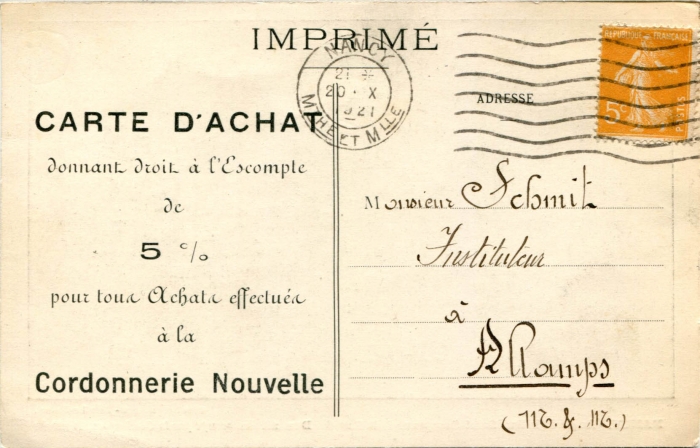 IMPRIMÉ
NANCY
21 *
20 - X
1921
MTHE ET MLLE
REPUBLIQUE FRANÇAISE
5c
POSTES
CARTE D'ACHAT
donnant droit à l'Escompte
de
5 %
pour tous Achats effectués
à la
Cordonnerie Nouvelle
ADRESSE
Monsieur Schmit
Instituteur
à
(M. & M.)